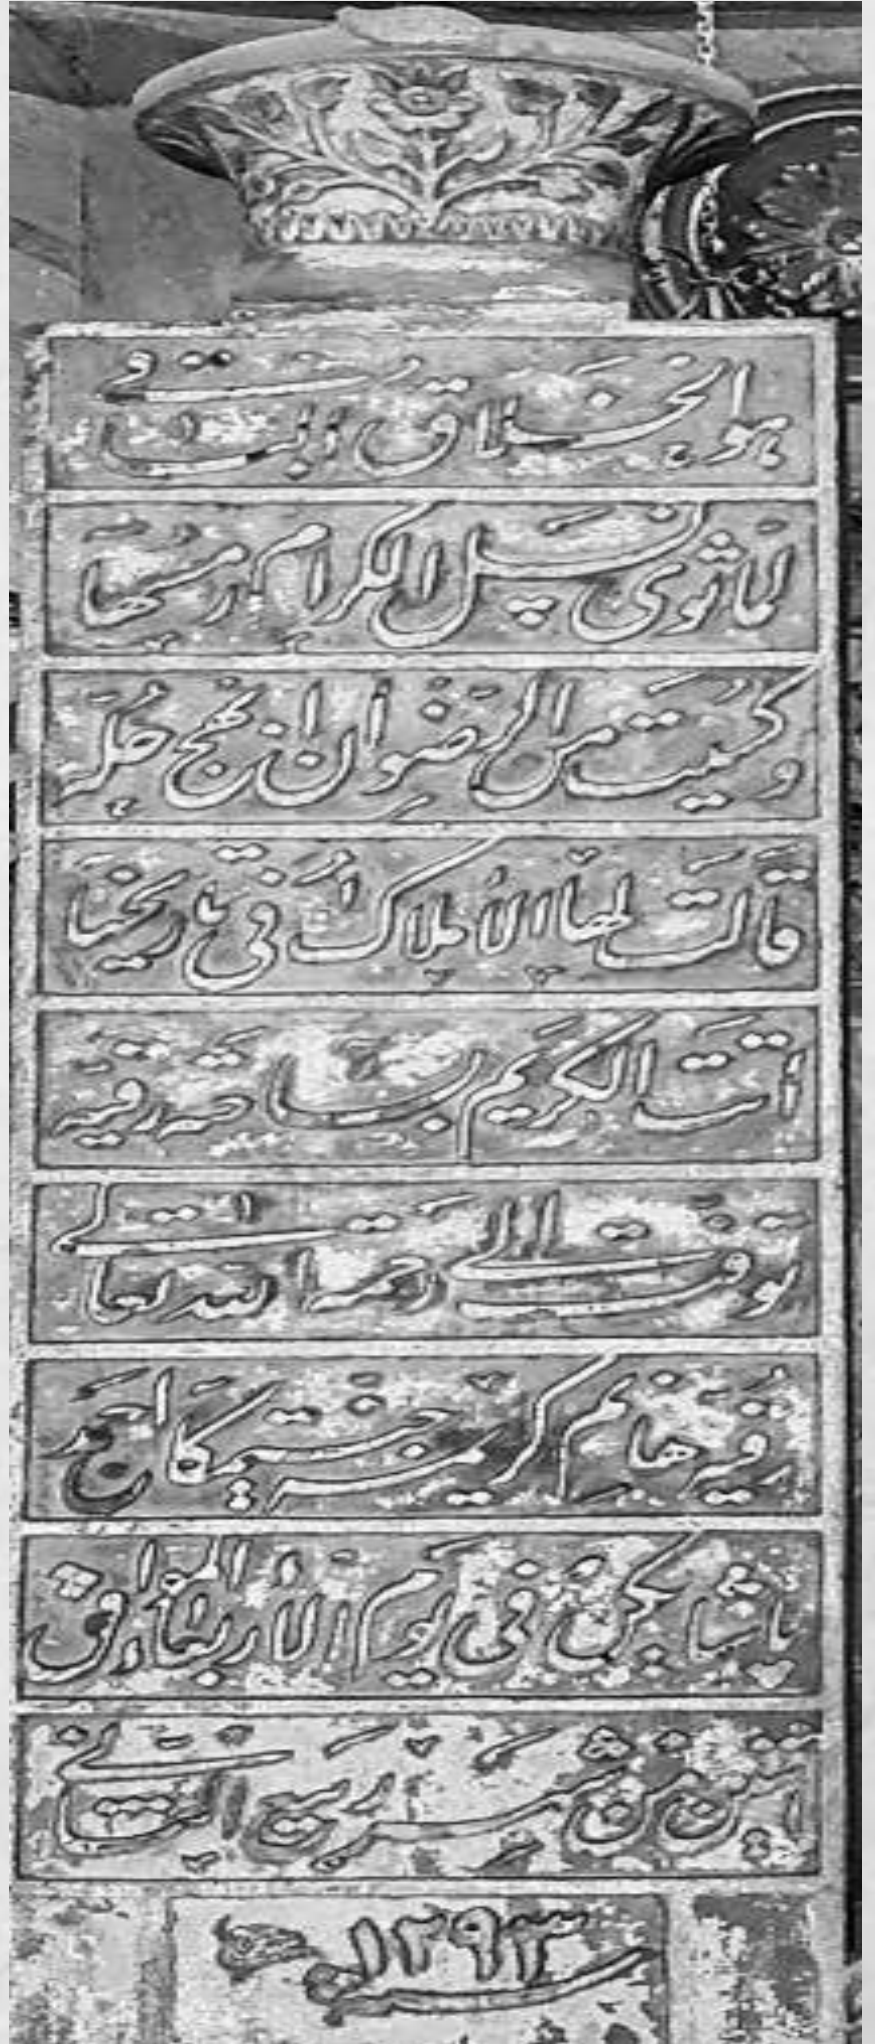 هو الخلاق الباقي
لما ثوى نسل الكرام رمسها
وكسيت من الرضوان ابهج حلة
قالت لها الأملاك في تاريخها
أتت الكريم بساحة رقية
توفت الى رحمة الله تعالى
رقية هانم كريمة احمد
باشا يكن في يوم الأربعا الموافق
اثنين من شهر ربيع الثاني
سنة ١٢٩٣